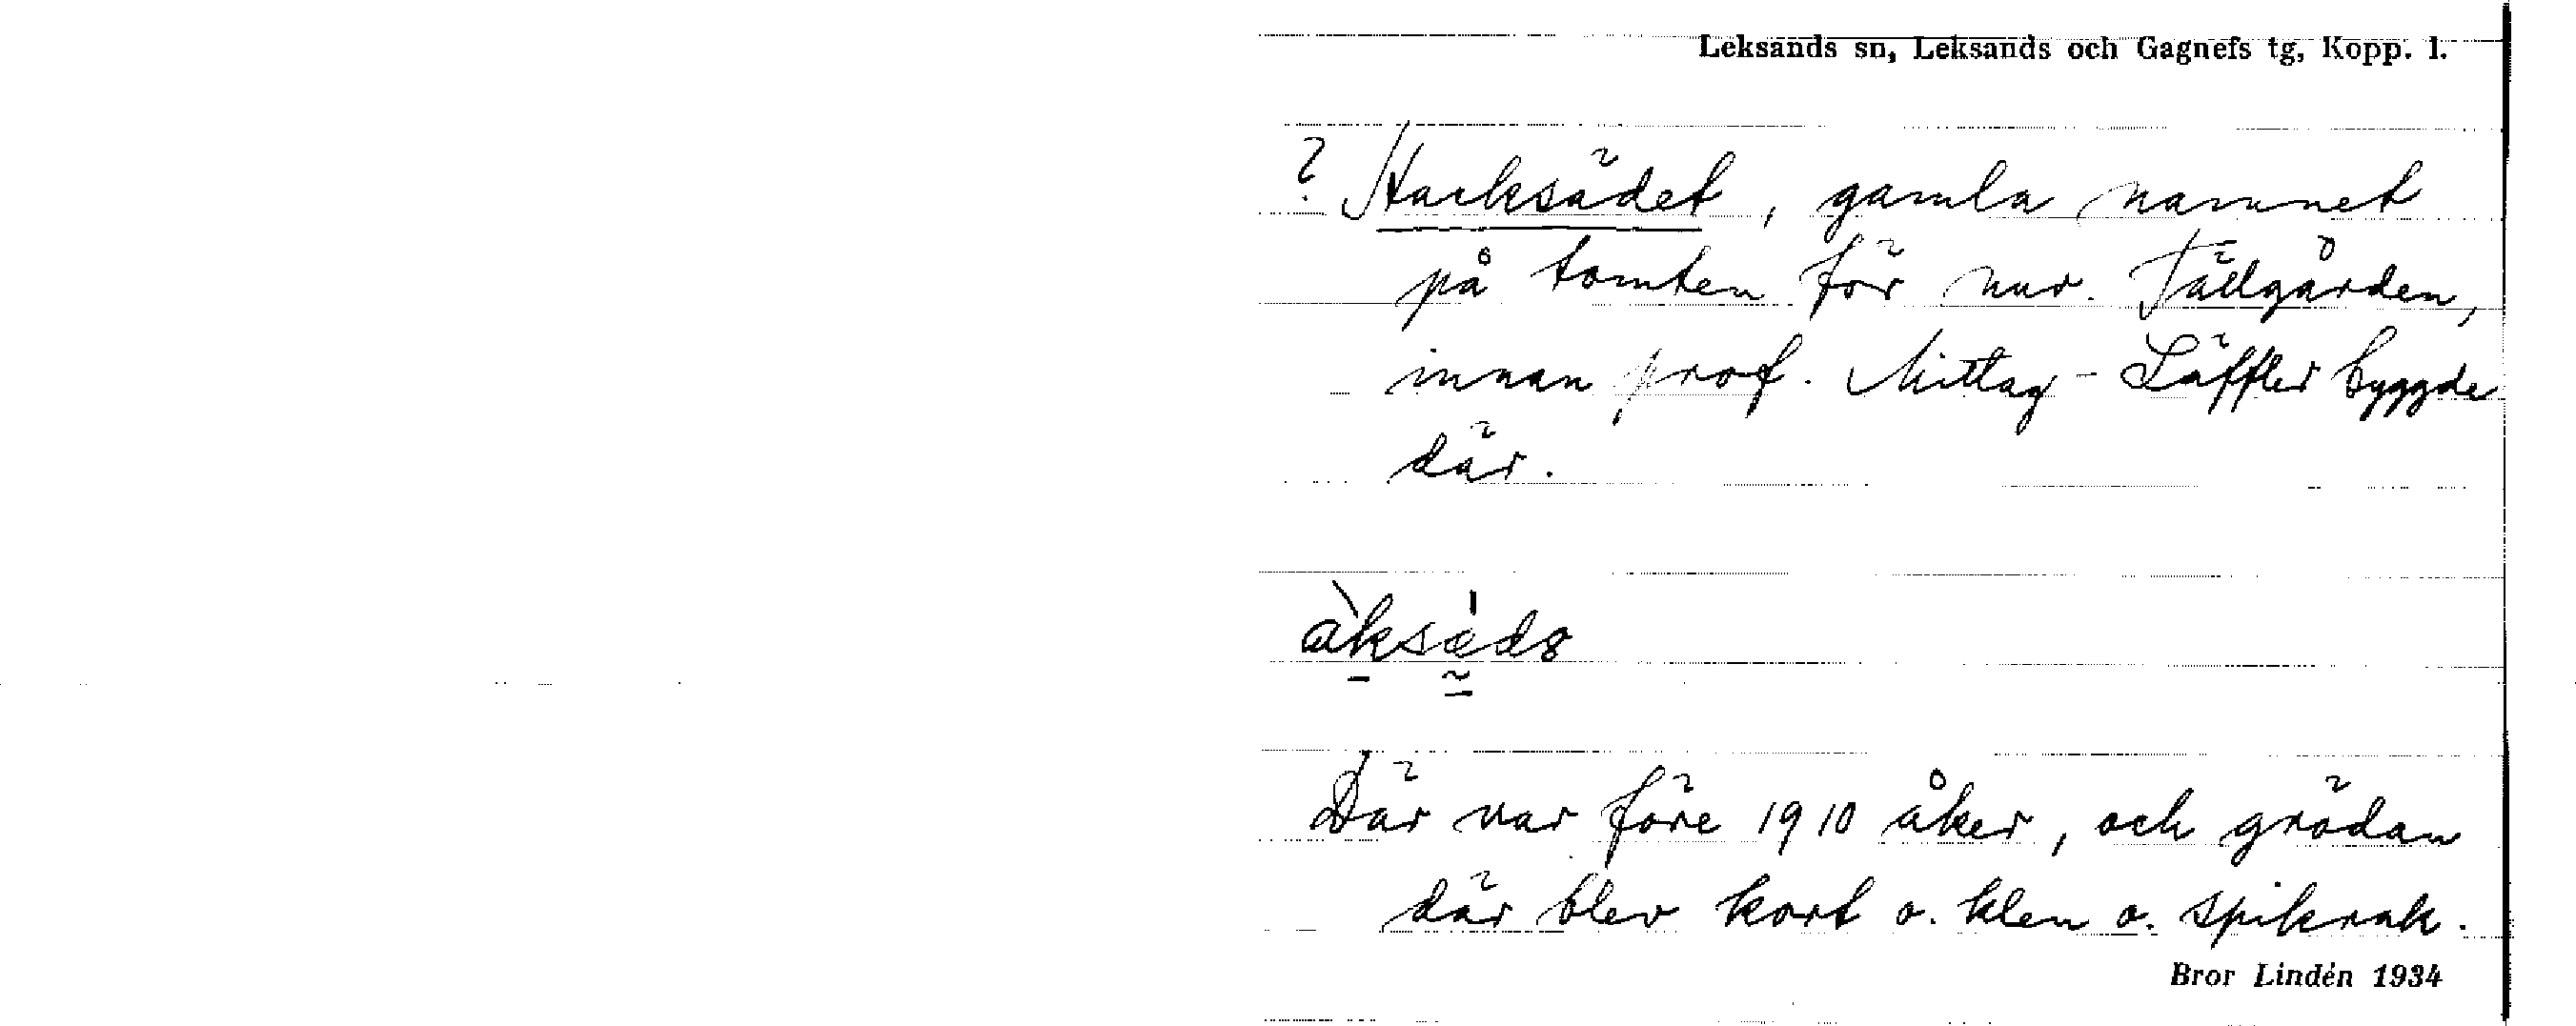 Leksands sn, Leksands och Gagnefs tg, Kopp. l.
? Hacksädet, gamla namnet
på tomten för nuv. Tällgården,
innan prof. Mittag-Läffler byggde
där.
Där var före 1910 åker, och grödan
där blev kort o. klen o. spikrak.
Bror Lindén 1934